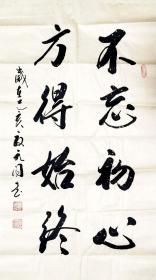 不忘初心
方得始终
歲在己亥